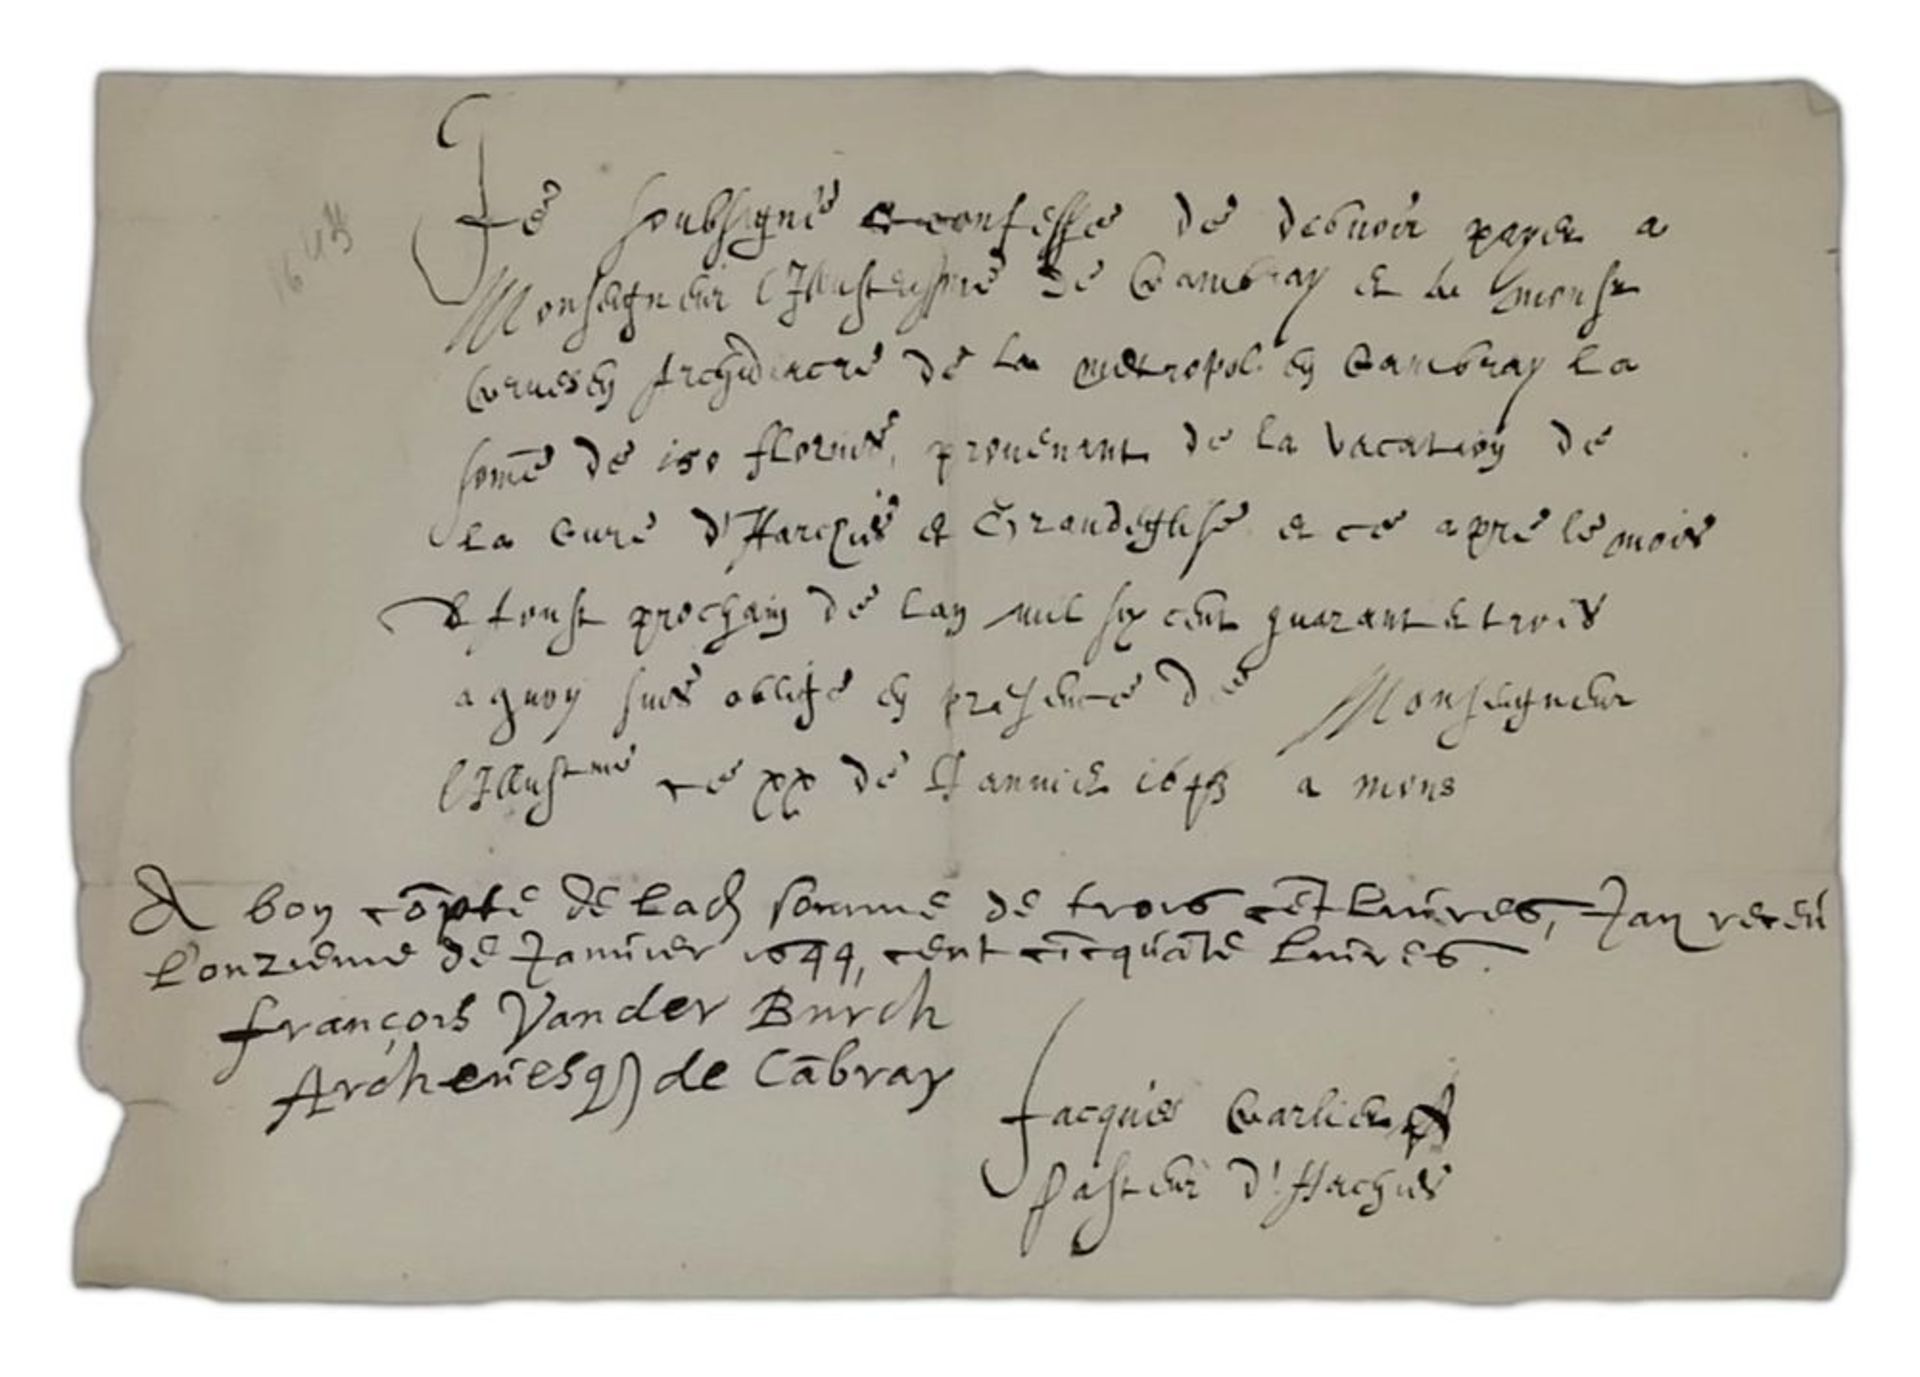 1643
Je soubsigné confesse de debuoir payer a
Monseigneur l'Illustrissme de Cambray et
Archidiacre de la metropol en Cambray la
some de 150 florins, prouenant de la vacation de
la Cure d'Harchies et Grandeglise et ce apre le mois
d'Aoust prochain de lan mil six cent quarant et trois
a quoy suis obligé en presence de Monseigneur
l'Illustme ce xx de Januier 1643 a mons
A bon cōpte de lad somme de trois cēt liures, Jay receu
l'onzieme de Januier 1644, cent cīcquāte liures.
françois Vander Burch
Archeuesq de Cābray
Jacques Carlier
Pasteur d'Hachies